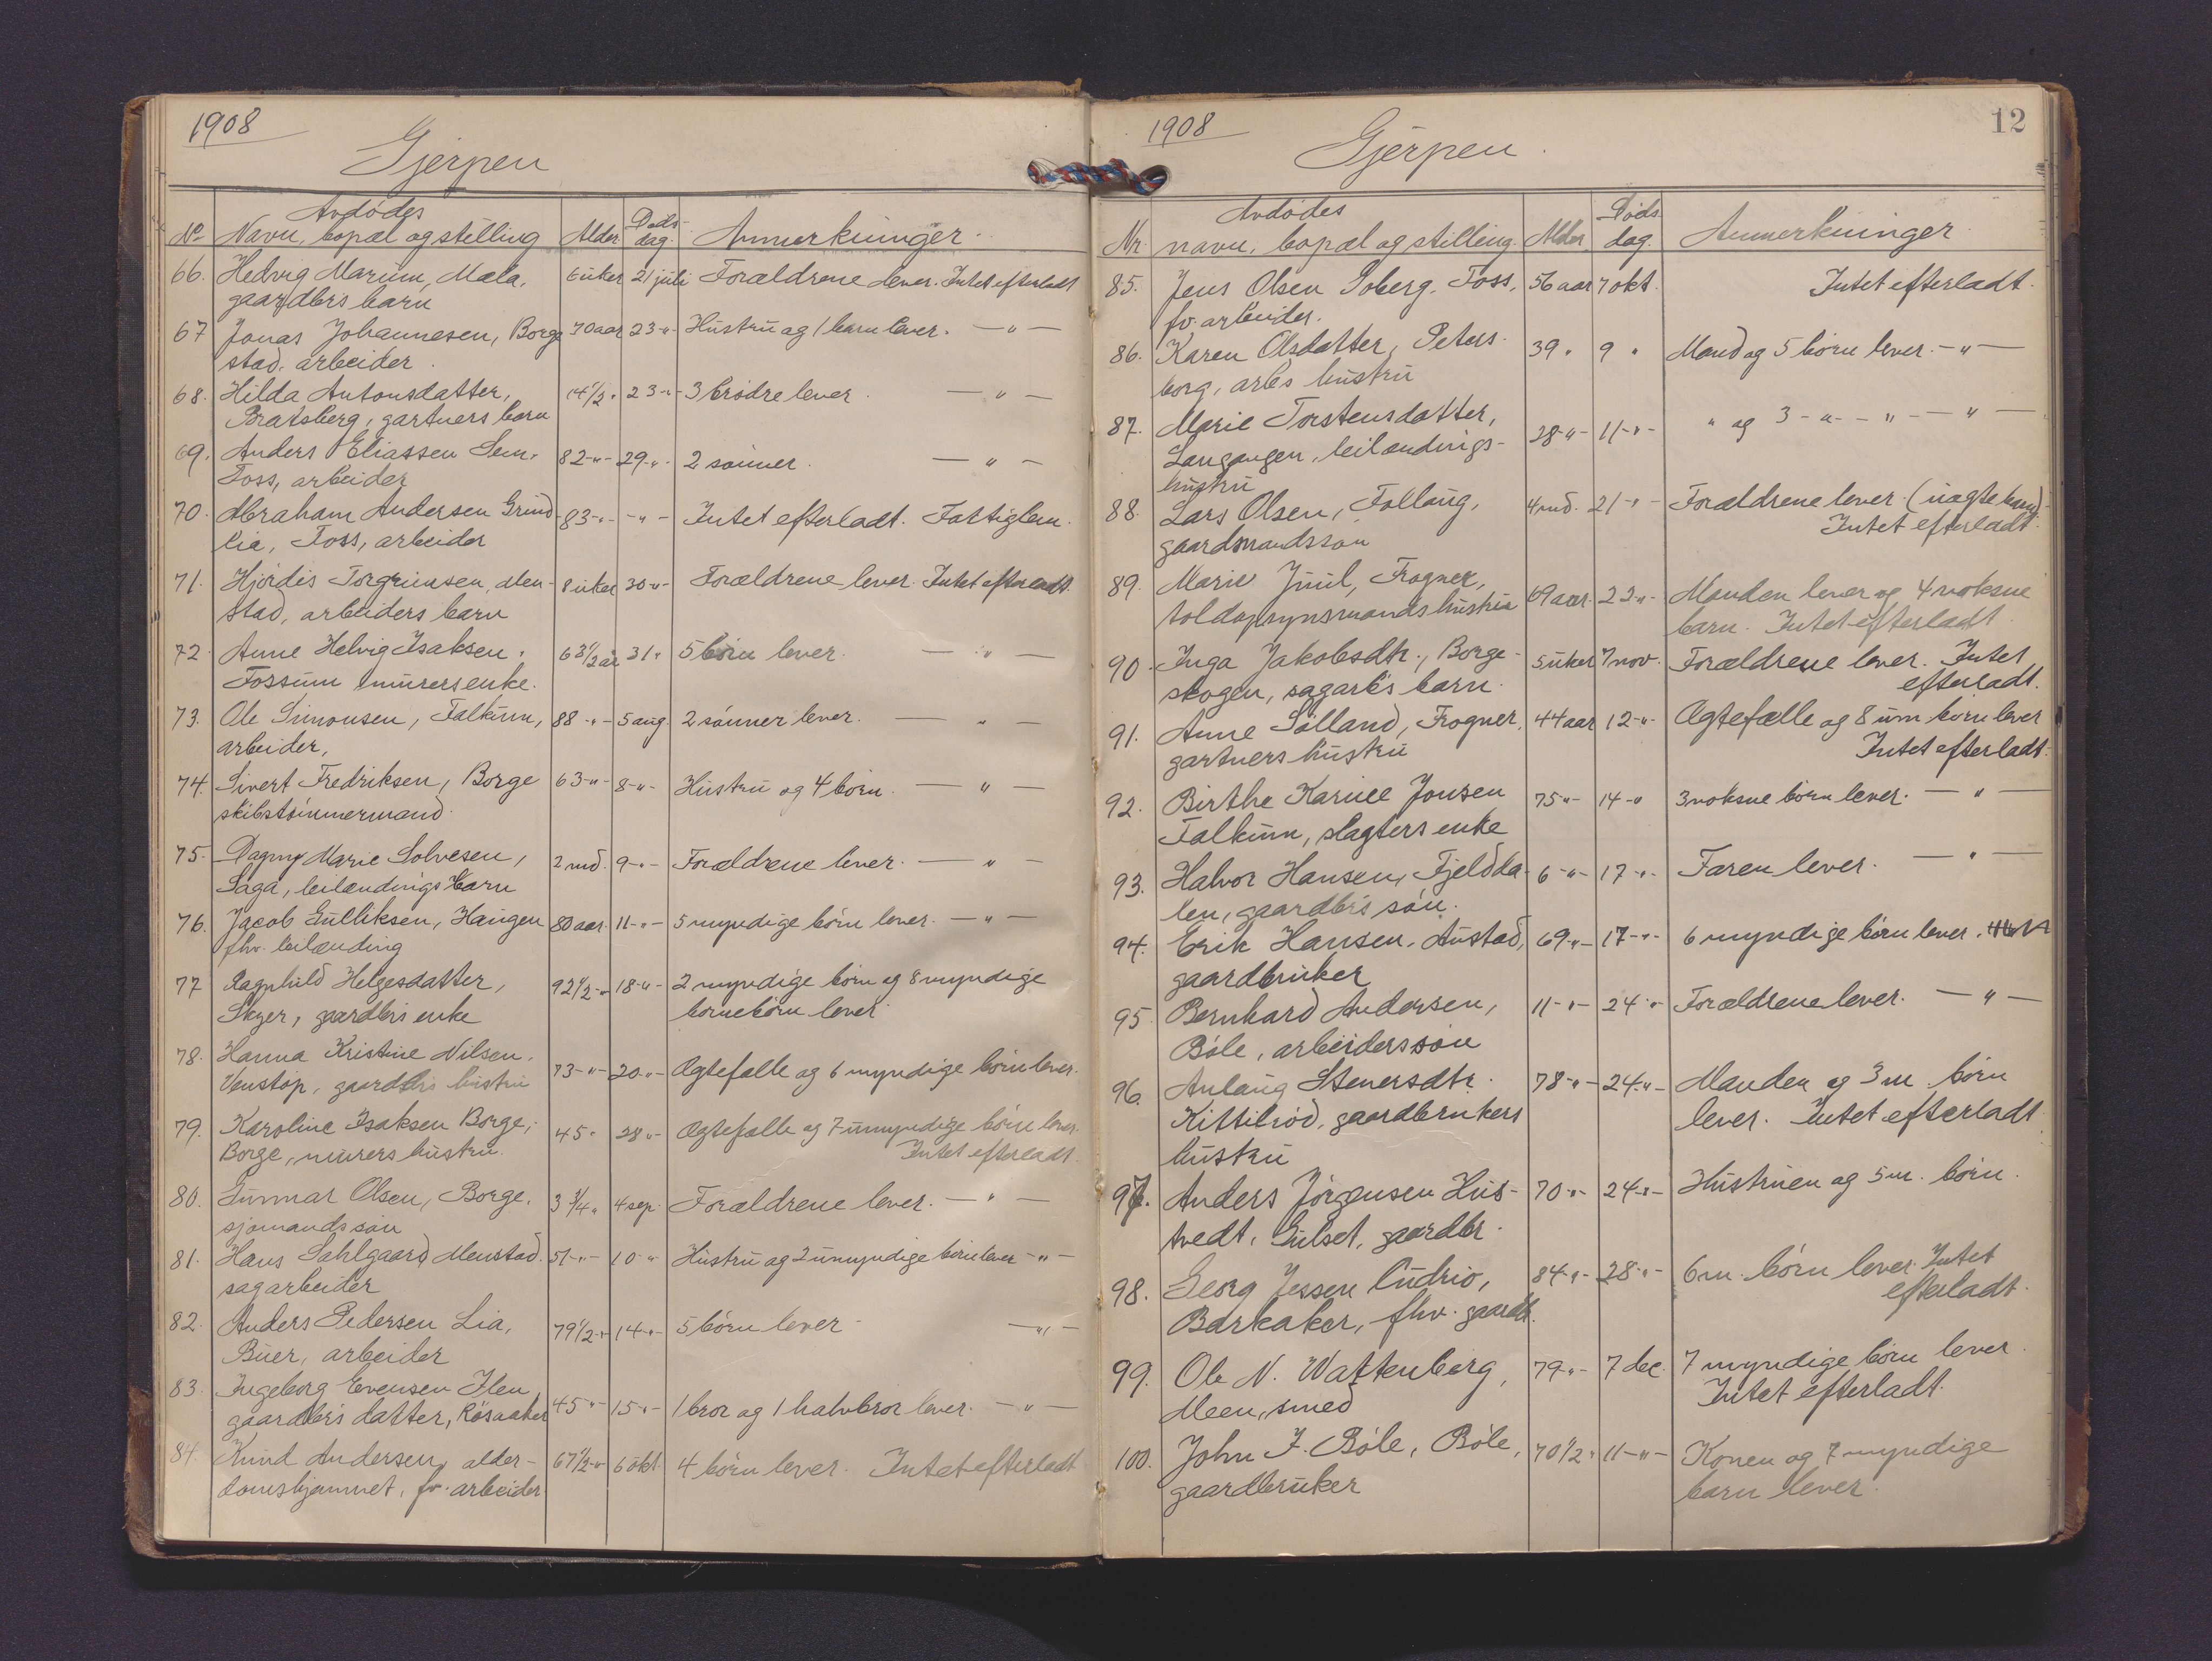 1908
Gjerpen
Avdödes
No Navn, bopæl og stilling Alder Döds-dag. Anmerkninger.
66. Hedvig Marum, Mæla, 6 uker 21 juli Forældrene lever. Intet efterladt
gaardbr's barn
67 Jonas Johannesen, Borge 70 aar 23 -"- Hustru og 1 barn lever. — " —
stad, arbeider.
68. Hilda Antonsdatter, 14 1/2 " 23 -"- 3 brödre lever. — " —
Bratsberg, gartners barn
69. Anders Eliassen Sem. 82 -"- 29 -"- 2 sönner. — " —
Foss, arbeider
70. Abraham Andersen Grind- 83 -"- -"- Intet efterladt. Fattiglem.
lia, Foss, arbeider
71. Hjördis Torgrimsen, Men- 8 uker 30 -"- Forældrene lever. Intet efterladt.
stad, arbeiders barn
72. Anne Helvig Isaksen. 63 1/2 år 31 " 5 börn lever. — " —
Fossum murers enke.
73. Ole Simonsen, Falkum, 88 -"- 5 aug. 2 sönner lever. — " —
arbeider,
74. Sivert Fredriksen, Borge 63 -"- 8 -"- Hustru og 4 börn. — " —
skibstömmermand.
75. Dagny Marie Solvesen, 2 md. 9 -"- Forældrene lever. — " —
Saga, leilændings barn
76. Jacob Gulliksen, Haugen 80 aar. 11 -"- 5 myndige börn lever. — " —
fhv. leilænding
77 Ragnhild Helgesdatter, 92 1/2 -"- 18 -"- 2 myndige börn og 8 myndige
Skyer, gaardbr's enke börnebörn lever
78. Hanna Kristine Nilsen. 73 -"- 20 -"- Ægtefælle og 6 myndige börn lever.
Venstöp, gaardbr's hustru
79. Karoline Isaksen Borge, 45 " 28 -"- Ægtefælle og 7 umyndige börn lever.
Borge, murers hustru. Intet efterladt.
80. Gunnar Olsen, Borge. 3 3/4 " 4 sep. Forældrene lever. — " —
sjömands sön
81. Hans Dahlgaard Menstad. 51 -"- 10 -"- Hustru og 2 umyndige börn lever -"-
sagarbeider
82. Anders Pedersen Lia, 79 1/2 -"- 14 -"- 5 börn lever — " —
Buer, arbeider
83. Ingeborg Evensen Ilen 45 -"- 15 -"- 1 bror og 1 halvbror lever. — " —
gaardbr's datter, Rösaaker
84. Knud Andersen, alder- 67 1/2 -"- 6 okt 4 börn lever. Intet efterladt
domshjemmet, fv. arbeider
1908
12
Gjerpen.
Avdödes
Nr. navn, bopæl og stilling. Alder Döds-dag. Anmerkninger
85. Jens Olsen Soberg. Foss, 56 aar 7 okt. Intet efterladt.
fv. arbeider.
86. Karen Olsdatter, Peters- 39 " 9 " Mand og 5 börn lever. — " —
borg, arb's hustru
87. Marie Torstensdatter, 28 -"- 11 -"- " og 3 -"- -"- — " —
Langangen, leilændings-
hustru
88. Lars Olsen, Follaug, 4 md. 21 -"- Forældrene lever. (uægte barn)
gaardmandssön Intet efterladt.
89. Marie Juul, Frogner, 69 aar. 22 -"- Manden lever og 4 voksne
toldopsynsmands hustru barn. Intet efterladt.
90. Inga Jakobsdtr., Borge- 5 uker 7 nov. Forældrene lever. Intet
skogen, sagarb's barn. efterladt.
91. Anne Sölland, Frogner, 44 aar 12 -"- Ægtefælle og 8 um. börn lever
gartners hustru Intet efterladt.
92. Birthe Karine Jonsen 75 -"- 14 -" 3 voksne börn lever. — " —
Falkum, slagters enke
93. Halvor Hansen, Fjeldda- 6 -"- 17 -"- Faren lever. — " —
len, gaardbr's sön.
94. Erik Hansen. Austad, 69 -"- 17 -"- 6 myndige börn lever.
gaardbruker
95. Bernhard Andersen, 11 -"- 24 -"- Forældrene lever. — " —
Böle, arbeiderssön
96. Anlaug Stenersdtr. 78 -"- 24 -"- Manden og 3 m. börn
Kittilröd, gaardbrukers lever. Intet efterladt
hustru
97. Anders Jörgensen Hus- 70 -"- 24 -"- Hustruen og 5 m. börn.
tvedt, Gulset, gaardbr.
98. Georg Jessen Cudrio, 84 -"- 28 -"- 6 m. börn lever. Intet
Borkaker, fhv. gaardb. efterladt.
99. Ole N. Wattenberg, 79 -"- 7 dec. 7 myndige börn lever.
Meen, smed Intet efterladt.
100. John J. Böle, Böle, 70 1/2 " 11 -"- Konen og 7 myndige
gaardbruker barn lever.